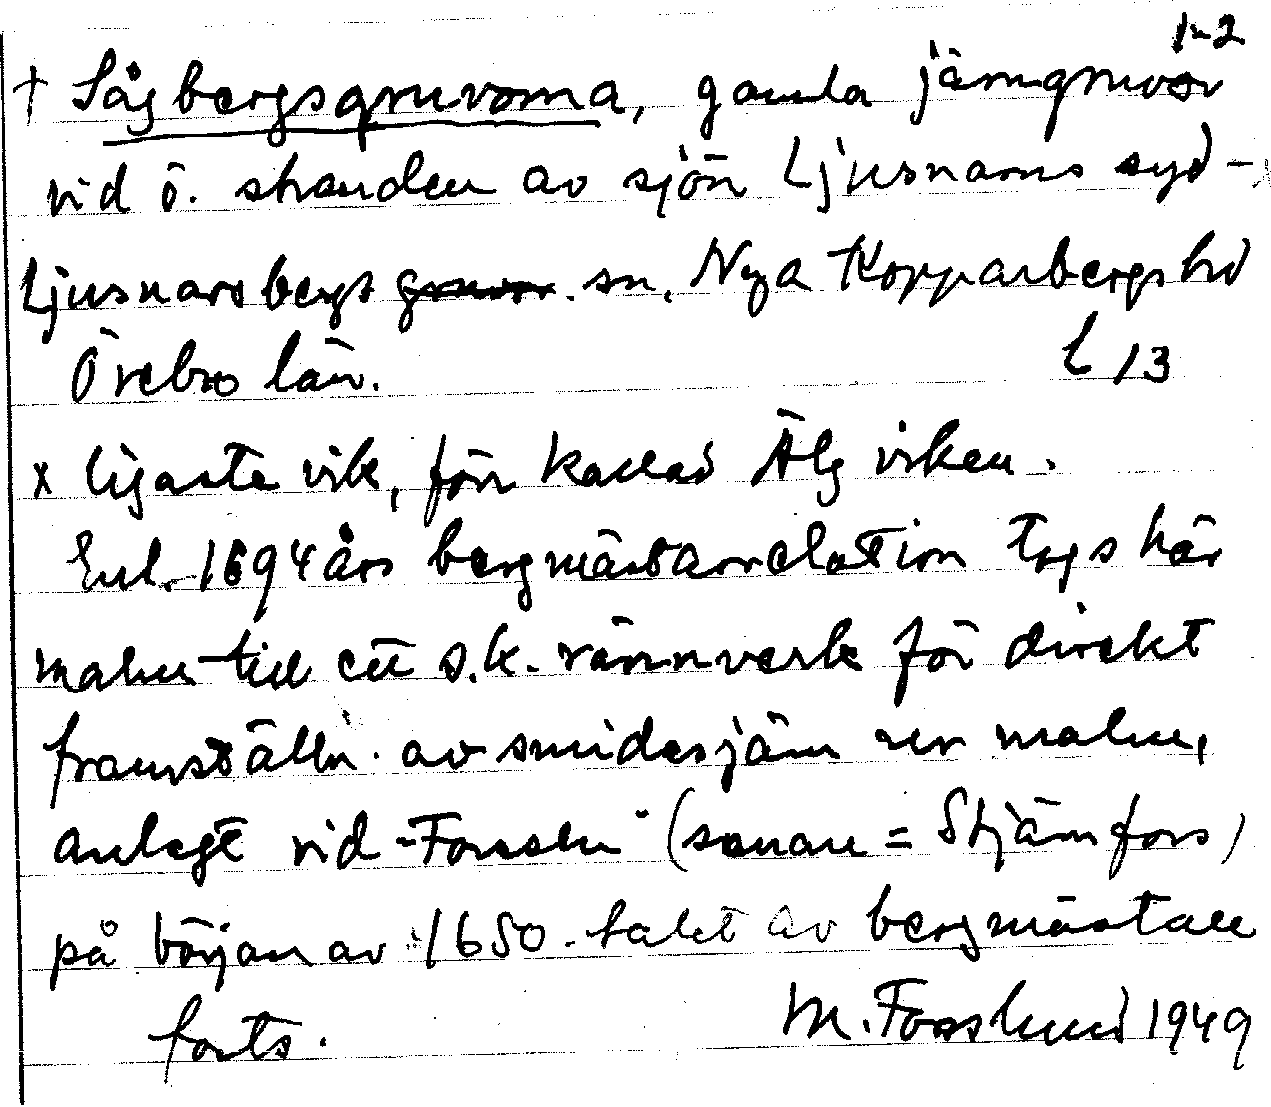 1-2
† Sågbergsgruvorna, gamla järngruvor
vid ö. stranden av sjön Ljusnarns syd-
Ljusnarsbergs gruvor. sn. Nya Kopparbergs hd
Örebro län. L 13
x ligaste vik, förr kallad Älgviken.
Enl. 1694 års bergmästarrelation togs här
malm till ett s.k. rännverk för direkt
framställn. av smidesjärn ur malm,
anlagt vid "Forssen" (senare = Stjärnfors)
på början av 1650-talet av bergmästare
forts. M. Forslund 1949